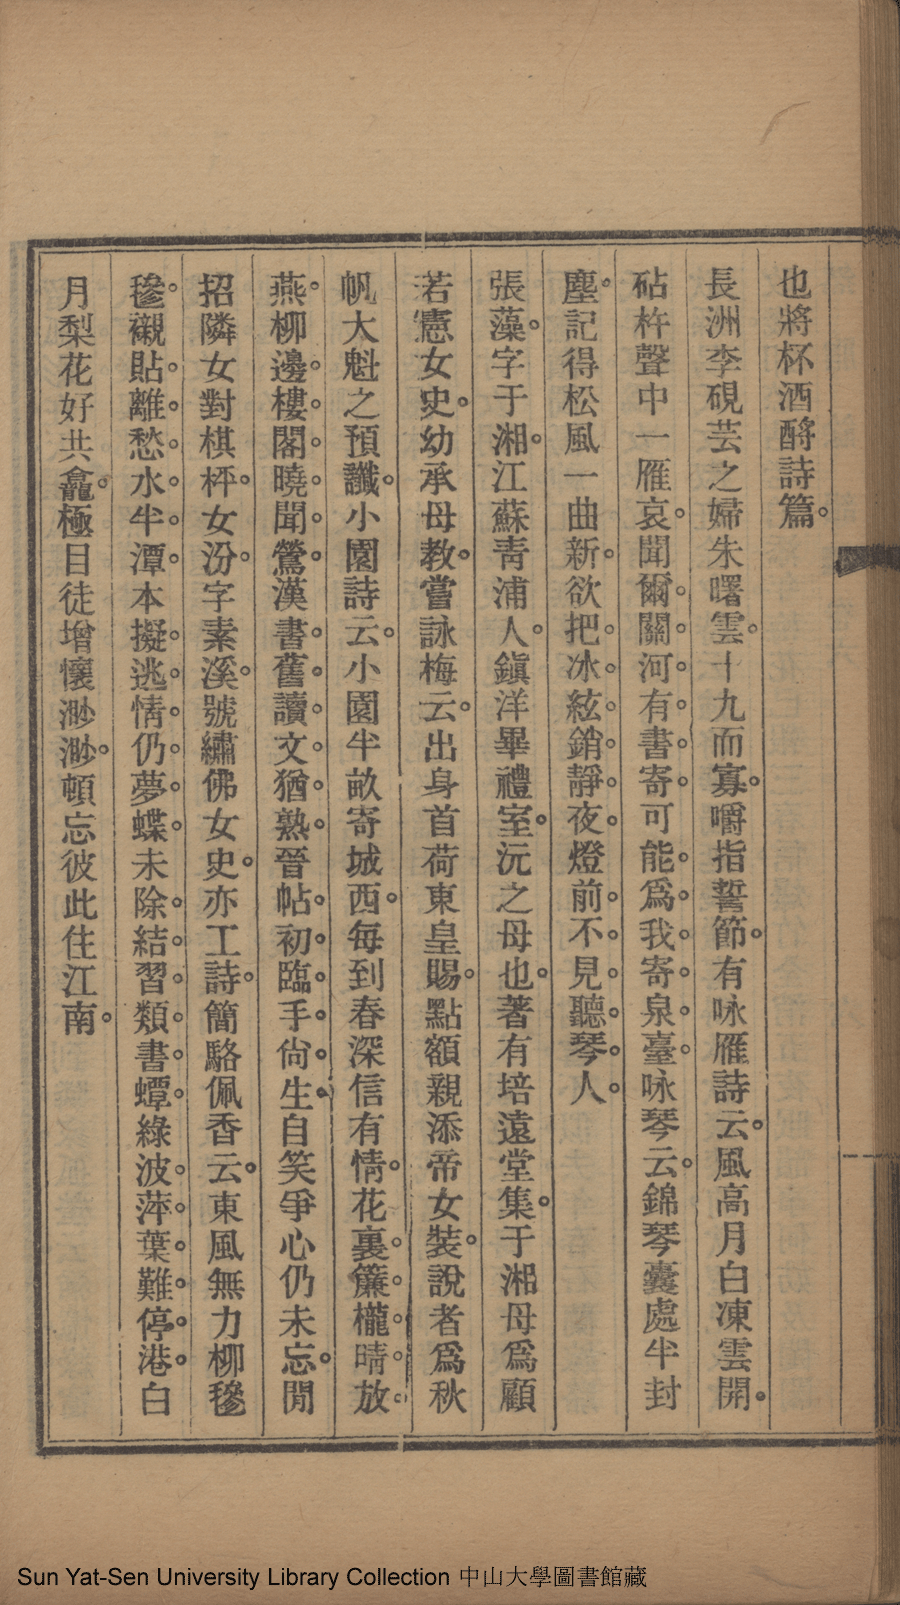 也將杯酒酹詩篇。
長洲李硯芸之婦朱曙雲。十九而寡。嚼指誓節。有咏雁詩云。風高月白凍雲開。
砧杵聲中一雁哀。聞爾。關。河。有。書。寄。可能。爲。我。寄。泉。臺。咏琴云。錦琴囊處半封
塵。記得松風一曲新。欲把。冰。絃。銷。靜。夜。燈前。不。見。聽。琴。人。
張藻。字于湘。江蘇青浦人。鎭洋畢禮室。沅之母也。著有培遠堂集。于湘母爲顧
若憲女史。幼承母教。嘗詠梅云。出身首荷東皇賜。點額親添帝女裝。說者爲秋
帆大魁之預讖。小園詩云。小園半畝寄城西。每到春深信有情。花裏。簾。櫳。晴。放。
燕。柳邊。樓。閣。曉。聞。鶯。漢書。舊。讀。文。猶。熟。晉帖。初。臨。手。尙。生。自笑爭心仍未忘。閒
招隣女對棋枰。女汾。字素溪。號繡佛女史。亦工詩。簡駱佩香云。東風無力柳毿
毿。襯貼。離。愁。水。半。潭。本擬。逃。情。仍。夢。蝶。未除。結。習。類。書。蟫。綠波。萍。葉。難。停。港。白
月梨花好共龕。極目徒增懷渺渺。頓忘彼此住江南。
Sun Yat-Sen University Library Collection 中山大學圖書館藏